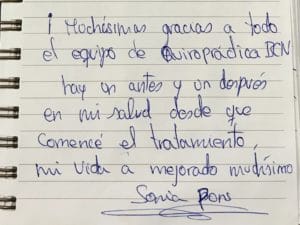 ¡ Mochísimas gracias a todo
el equipo de Quiropráctica BCN
hay un antes y un después
en mi salud desde que
comencé el tratamiento,
mi vida á mejorado muchísimo
Sonia Pons